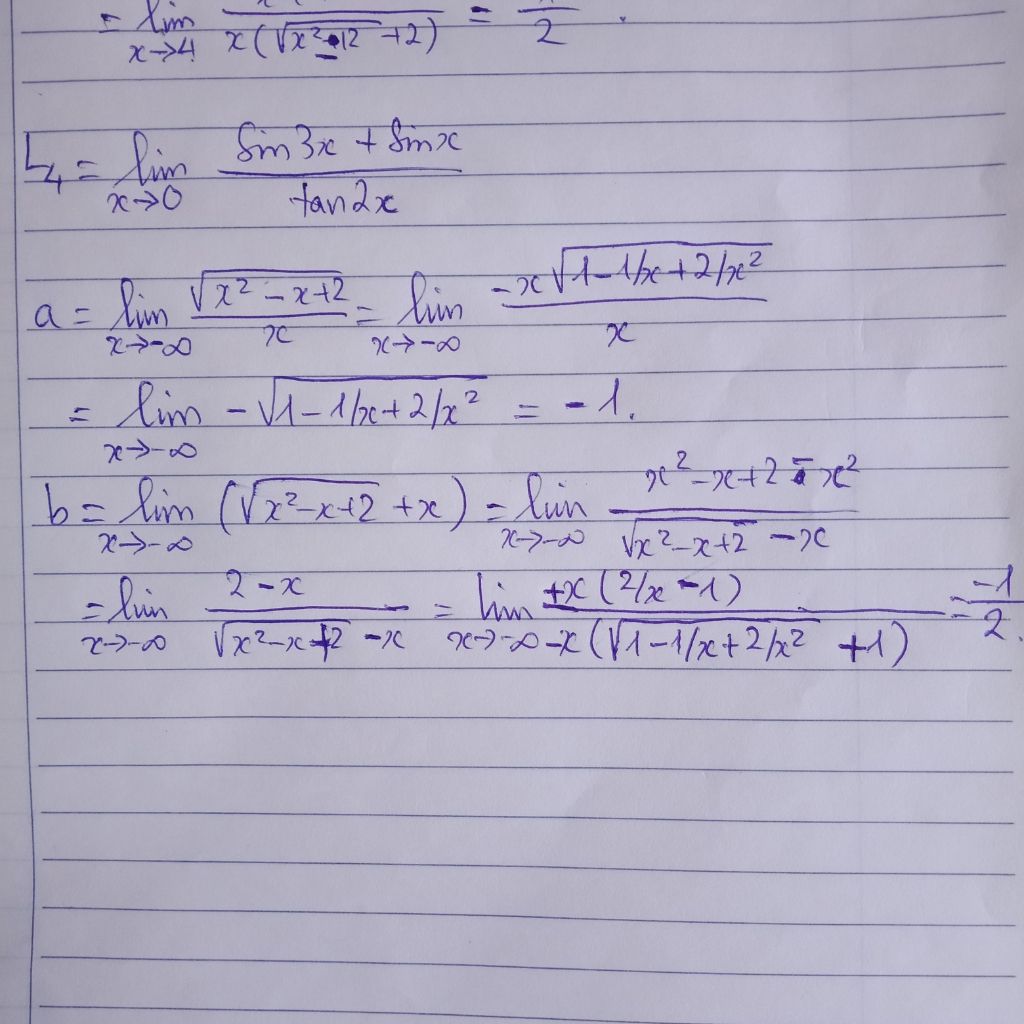 = lim x→4 x(√x²-12 +2) = 2 .
L₄ = lim x→0 (sin3x + sinx)/(tan2x)
a = lim x→-∞ (√x² - x+2)/x = lim x→-∞ (-x√1-1/x+2/x²)/x
= lim x→-∞ -√1-1/x+2/x² = -1.
b = lim x→-∞ (√x²-x+2 +x) = lim x→-∞ (x²-x+2-x²)/(√x²-x+2 -x)
= lim x→-∞ (2-x)/(√x²-x+2 -x) = lim x→-∞ (+x(2/x-1))/(-x(√1-1/x+2/x² +1)) = -1/2.